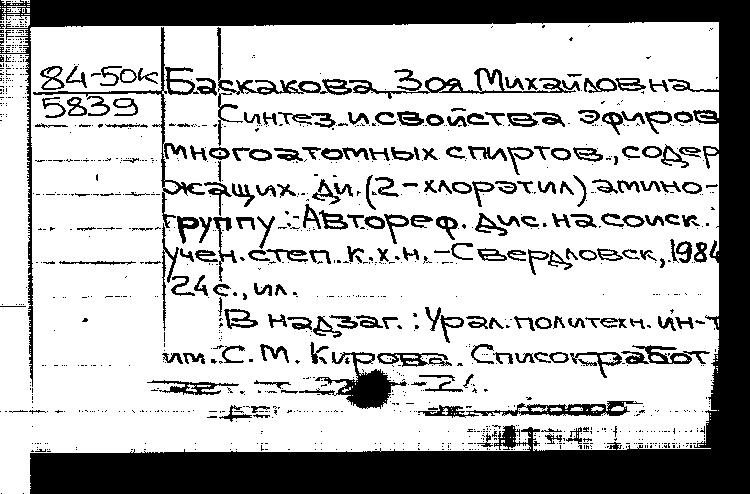 84-50к Баскакова Зоя Михайловна
5839 Синтез и свойства эфиров
многоатомных спиртов, содер
жащих ди.(2-хлорэтил)амино-
группу: Автореф. дис. на соиск.
учен. степ. к.х.н. -Свердловск, 1984
24 с., ил.
В надзаг.: Урал. политехн. ин-т
им. С. М. Кирова. Список работ
с. 22 -24.